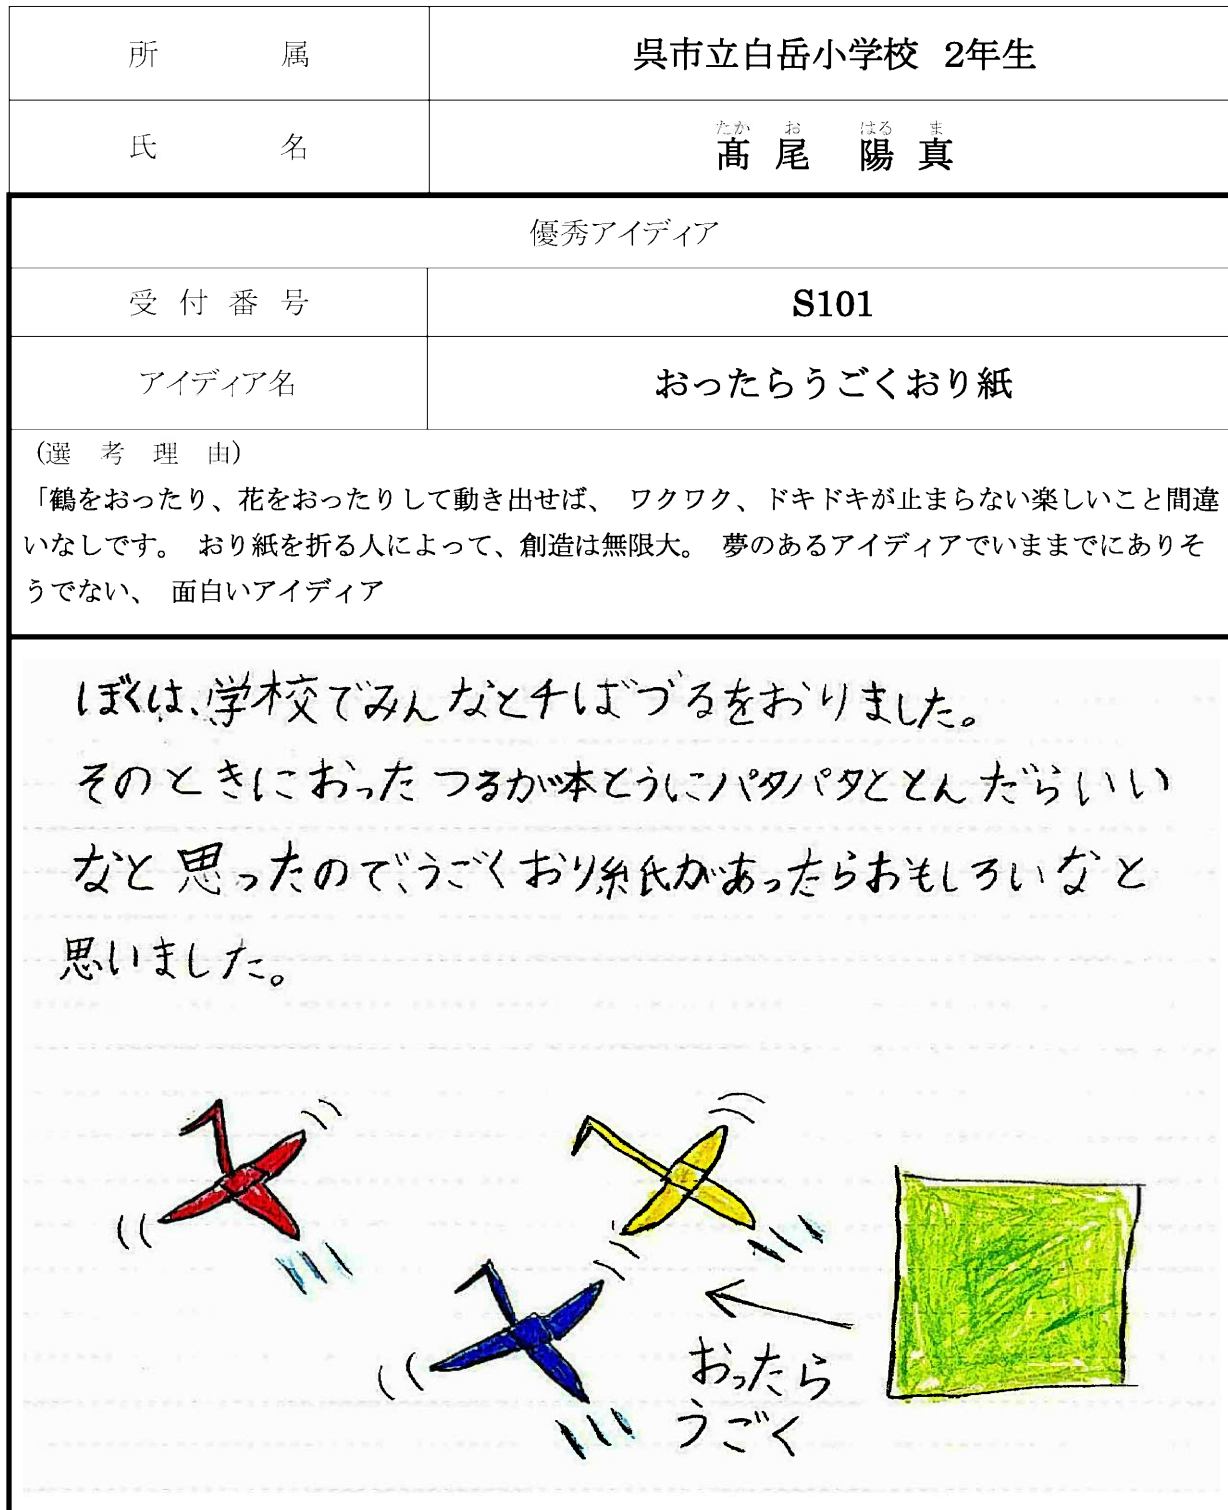 所属 呉市立白岳小学校 2年生
たかお はるま
氏名 髙尾 陽真
優秀アイディア
受付番号 S101
アイディア名 おったらうごくおり紙
(選考理由)
「鶴をおったり、花をおったりして動き出せば、 ワクワク、ドキドキが止まらない楽しいこと間違
いなしです。 おり紙を折る人によって、創造は無限大。 夢のあるアイディアでいままでにありそ
うでない、 面白いアイディア
ぼくは、学校でみんなと千ばづるをおりました。
そのときにおったつるが本とうにパタパタととんだらいい
なと思ったので、うごくおり紙があったらおもしろいなと
思いました。
おったら
うごく